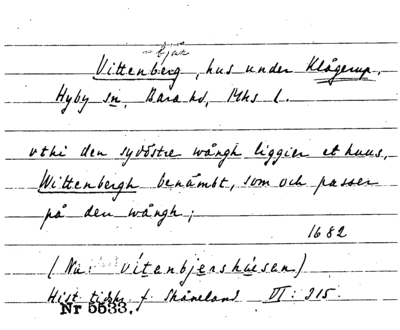 -bjär
Vittenberg, hus under Klågerup,
Hyby sn, Bara hd, Mhs l.
uthi den sydöstre wångh liggier et huus,
Wittenbergh benämbt, som och passer
på den wångh;
1682
(Nu: vitenbjershusen)
Hist tidskr. f Skåneland VI: 315.
Nr 5533.